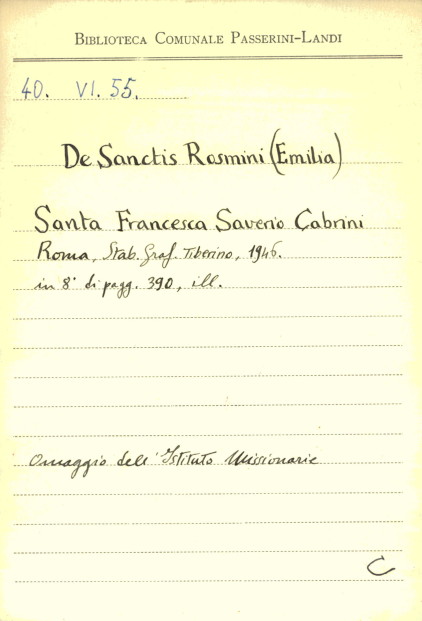 BIBLIOTECA COMUNALE PASSERINI-LANDI
40. VI. 55.
De Sanctis Rosmini (Emilia)
Santa Francesca Saverio Cabrini
Roma, Stab. Graf. Tiberino, 1946.
in 8° di pagg. 390, ill.
Omaggio dell'Istituto Missionarie
C